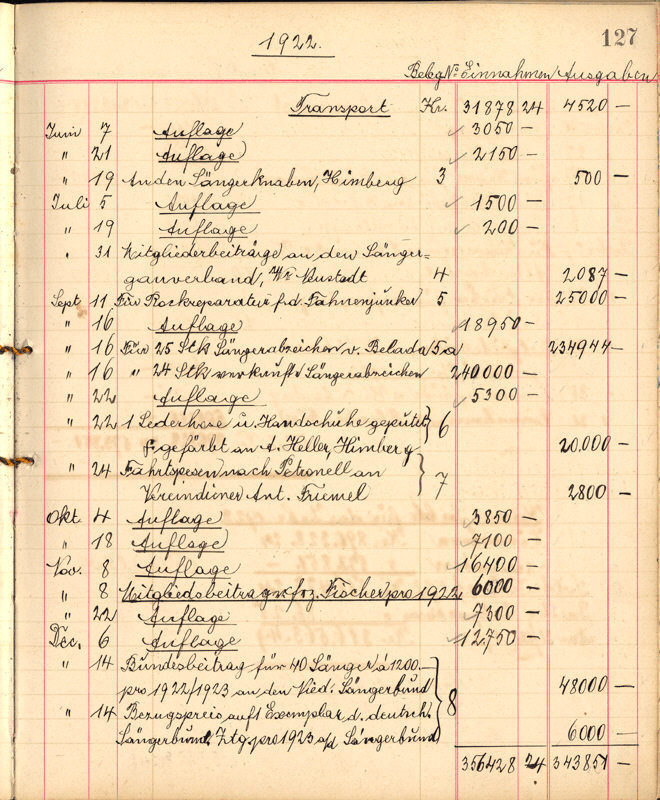 127
1922.
Beleg No Einnahmen Ausgaben
Transport Kr. 31878 24 4520 —
Juni 7 Auflage 3050 —
" 21 Auflage 2150 —
" 19 An den Sängerknaben, Himberg 3 500 —
Juli 5 Auflage 1500 —
" 19 Auflage 200 —
" 31 Mitgliederbeiträge an den Sänger=
gauverband, Wr Neustadt 4 2087 —
Sept 11 Für Rockreparatur f. d. Fahnenjunker 5 25000 —
" 16 Auflage 18950 —
" 16 Für 25 Stk Sängerabzeichen v. Belada 5a 234944 —
" 16 " 24 Stk verkaufte Sängerabzeichen 240000 —
" 22 Auflage 5300 —
" 22 1 Lederhose u. Handschuhe geputzt 6
gefärbt an A. Heller, Himberg 20.000 —
" 24 Fahrtspesen nach Petronell an
Vereindiener Ant. Friemel 7 2800 —
Okt. 4 Auflage 3850 —
" 18 Auflage 7100 —
Nov. 8 Auflage 16400 —
" 8 Mitgliedsbeitrag v. frz. Fischer pro 1922 6000 —
" 22 Auflage 7300 —
Dec. 6 Auflage 12750 —
" 14 Bundesbeitrag für 40 Sänger á 1200.—
pro 1922/1923 an den Nied. Sängerbund 8 48000 —
" 14 Bezugspreis auf 1 Exemplar d. deutsch.
Sängerbund. Ztg. pro 1923 a/d Sängerbund 6000 —
356428 24 343851 —